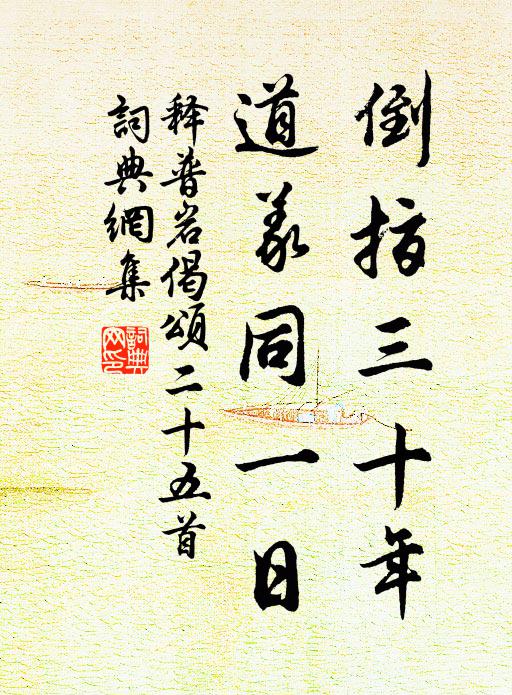 倒指三十年
道義同一日
释普岩偈頌二十五首
詞典網集
詞典
网印